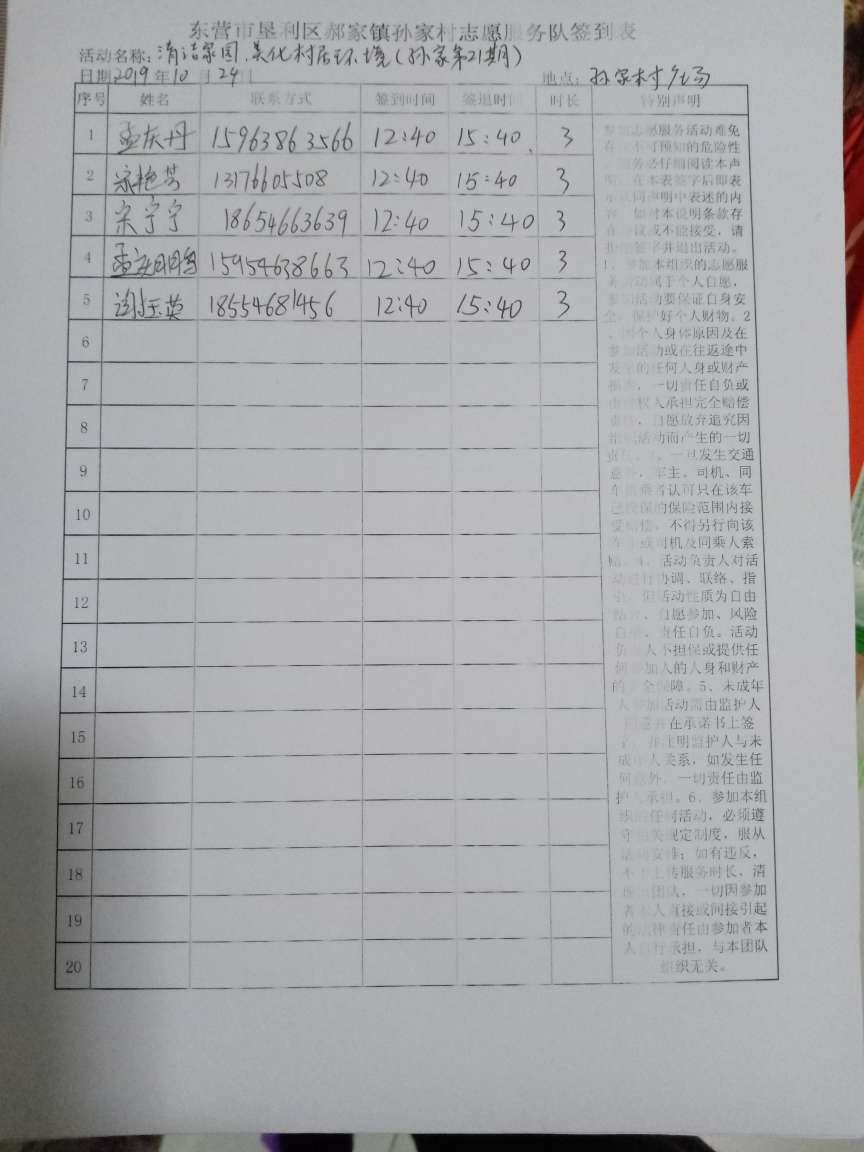 东营市垦利区郝家镇孙家村志愿服务队签到表
活动名称：清洁家园，美化村居环境（孙家第21期）
日期2019年10月24日 地点：孙家村广场
序号 姓名 联系方式 签到时间 签退时间 时长 特别声明
1 孟庆丹 15963863566 12:40 15:40 3
2 宋艳芳 13176605508 12:40 15:40 3
3 宋宁宁 18654663639 12:40 15:40 3
4 15954638663 12:40 15:40 3
5 谢玉英 18554681456 12:40 15:40 3
6
7
8
9
10
11
12
13
14
15
16
17
18
19
20
参加志愿服务活动难免
存在不可预知的危险性
，请务必仔细阅读本声
明，在本表签字后即表
示认同声明中表述的内
容。如对本说明条款存
在异议或不能接受，请
拒绝签字并退出活动。
1、参加本组织的志愿服
务活动属于个人自愿，
参加活动要保证自身安
全，保护好个人财物。2
、因个人身体原因及在
参加活动或在往返途中
发生的任何人身或财产
损害，一切责任自负或
由侵权人承担完全赔偿
责任，自愿放弃追究因
组织活动而产生的一切
责任。3、一旦发生交通
意外，车主、司机、同
车搭乘者认可只在该车
已投保的保险范围内接
受赔偿，不得另行向该
车主或司机及同乘人索
赔。4、活动负责人对活
动进行协调、联络、指
引，但活动性质为自由
结合、自愿参加、风险
自担、责任自负。活动
负责人不担保或提供任
何参加人的人身和财产
的安全保障。5、未成年
人参加活动需由监护人
同意并在承诺书上签
字，并注明监护人与未
成年人关系，如发生任
何意外，一切责任由监
护人承担。6、参加本组
织的任何活动，必须遵
守相关规定制度，服从
活动安排；如有违反，
不予上传服务时长，清
理出团队，一切因参加
者本人直接或间接引起
的法律责任由参加者本
人自行承担，与本团队
组织无关。